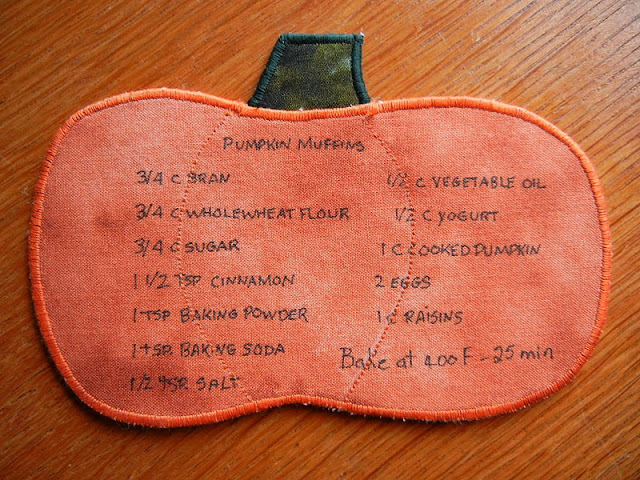 PUMPKIN MUFFINS
3/4 C BRAN
3/4 C WHOLEWHEAT FLOUR
3/4 C SUGAR
1 1/2 TSP CINNAMON
1 TSP BAKING POWDER
1 TSP. BAKING SODA
1/2 TSP. SALT
1/2 C VEGETABLE OIL
1/2 C YOGURT
1 C COOKED PUMPKIN
2 EGGS
1 C RAISINS
Bake at 400F - 25 min